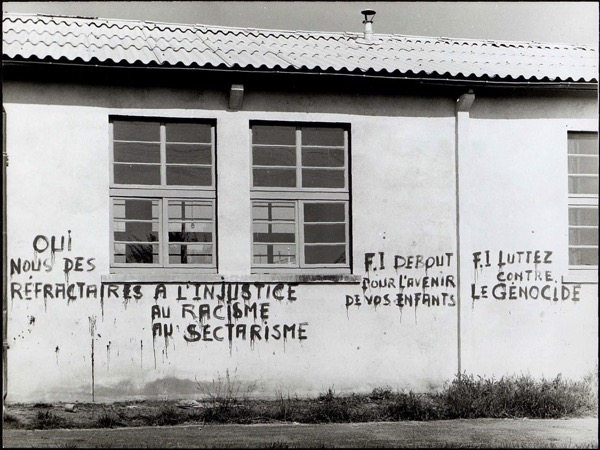 OUI
NOUS DES
RÉFRACTAIRES A L'INJUSTICE
AU RACISME
AU SECTARISME
F.I DEBOUT
POUR L'AVENIR
DE VOS ENFANTS
F.I LUTTEZ
CONTRE
LE GÉNOCIDE